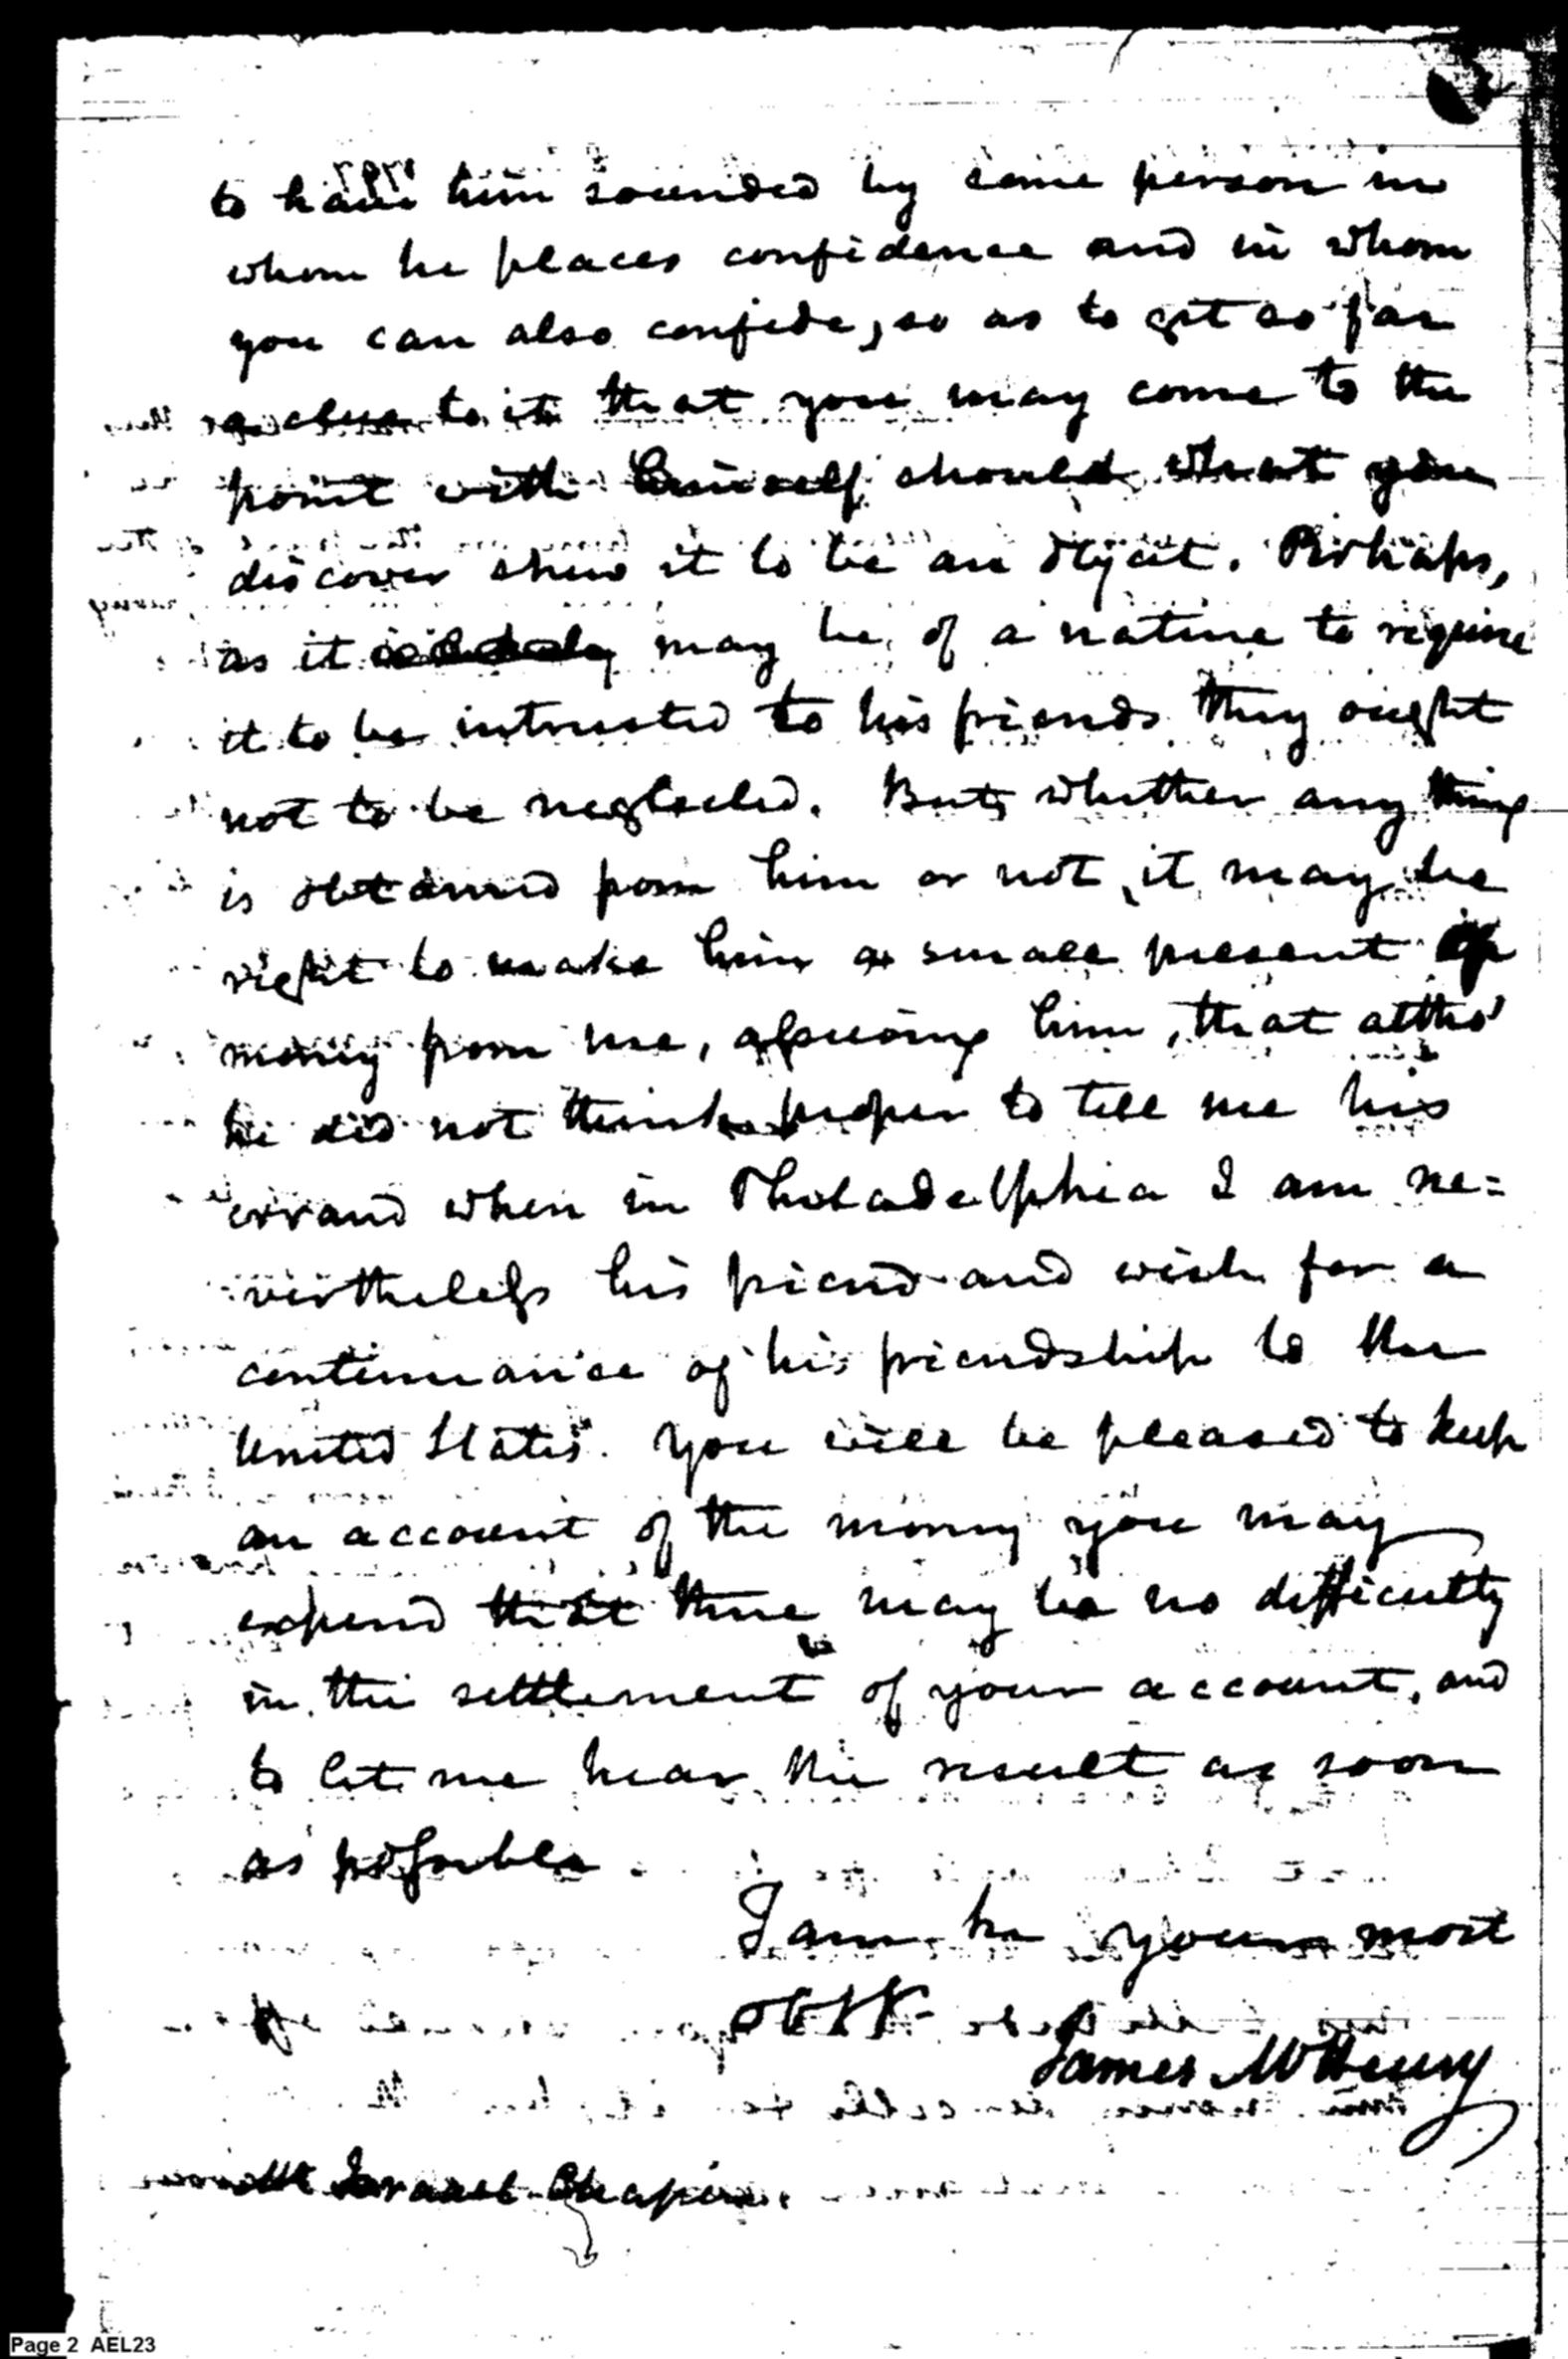 to have him sounded by some person in
whom he places confidence and in whom
you can also confide, so as to get so far
a clue to it that you may come to the
point with himself should what you
discover shew it to be an object. Perhaps,
as it may be of a nature to require
it to be intrusted to his friends they ought
not to be neglected. But, whether any thing
is obtained from him or not, it may be
right to make him a small present of
money from me, assuring him, that altho'
he did not think proper to tell me his
errand when in Philadelphia I am ne=
vertheless his friend and wish for a
continuance of his friendship to the
United States. You will be pleased to keep
an account of the money you may
expend that there may be no difficulty
in the settlement of your account, and
to let me hear the result as soon
as possible.
I am your most
obt
James McHenry
Israel Chapin.
Page 2 AEL23